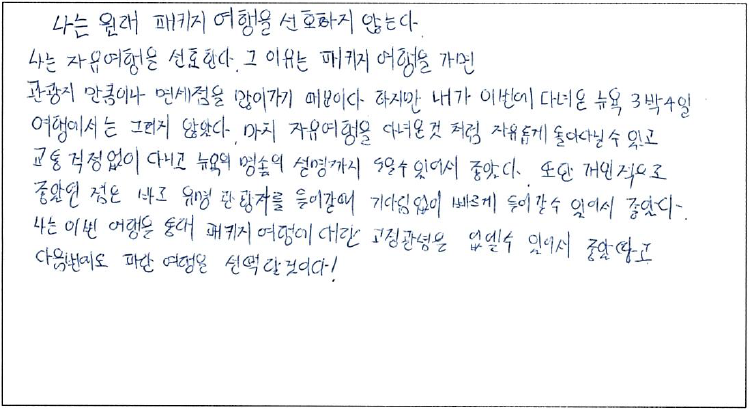 나는 원래 패키지 여행을 선호하지 않는다.
나는 자유여행을 선호한다. 그 이유는 패키지 여행을 가면
관광지 만큼이나 면세점을 많이가기 때문이다 하지만 내가 이번에 다녀온 뉴욕 3박4일
여행에서는 그러지 않았다. 마치 자유여행을 다녀온것 처럼 자유롭게 돌아다닐수 있고
교통 걱정없이 다니고 뉴욕의 명소의 설명까지 들을수있어서 좋았다. 또한 개인적으로
좋았던 점은 바로 유명 관광지를 들어갈때 기다림없이 빠르게 들어갈수 있어서 좋았다.
나는 이번 여행을 통해 패키지여행에 대한 고정관념을 없앨수 있어서 좋았고
다음번에도 파란 여행을 선택할것이다!